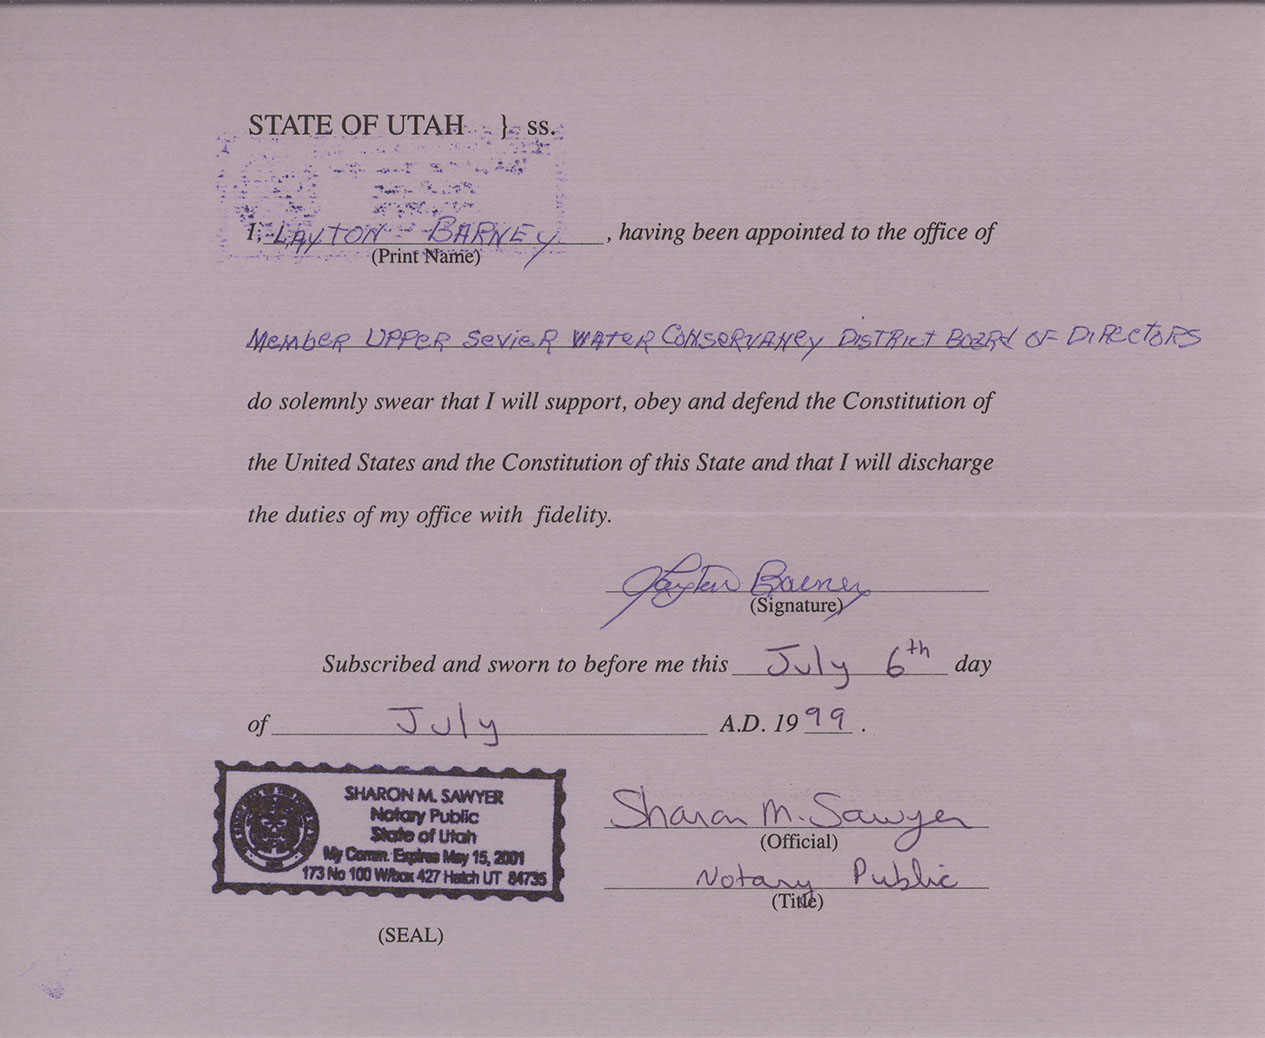 STATE OF UTAH } ss.
I, LAYTON BARNEY, having been appointed to the office of
(Print Name)
Member UPPER Sevier WATER Conservancy District Board of Directors
do solemnly swear that I will support, obey and defend the Constitution of
the United States and the Constitution of this State and that I will discharge
the duties of my office with fidelity.
Layton Barney
(Signature)
Subscribed and sworn to before me this July 6th day
of July A.D. 1999.
SHARON M. SAWYER
Notary Public
State of Utah
My Comm. Expires May 15, 2001
173 No 100 W/box 427 Hatch UT 84735
Sharon M. Sawyer
(Official)
Notary Public
(Title)
(SEAL)